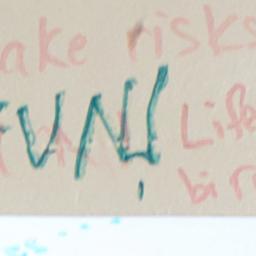 ake risks
FUN!
Life
bir